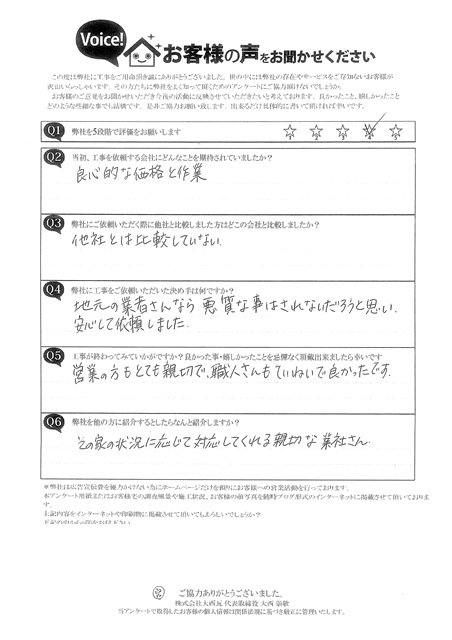 Voice!
お客様の声をお聞かせください
この度は弊社に工事をご用命頂き誠にありがとうございました。世の中には弊社の存在やサービスをご存知ないお客様が
沢山いらっしゃいます。その方たちに弊社をよく知って頂くためのアンケートにご協力頂けないでしょうか。
お客様のご意見をお聞かせいただき今後の活動に反映させていただきたいと考えております。良かったこと、嬉しかったこと
どのような些細な事でも結構です。是非ご協力お願い致します。出来るだけ具体的に書いて頂ければ幸いです。
Q1 弊社を5段階で評価をお願いします
1 2 3 4 5
Q2 当初、工事を依頼する会社にどんなことを期待されていましたか？
良心的な価格と作業
Q3 弊社にご依頼いただく際に他社と比較しました方はどこの会社と比較しましたか？
他社とは比較していない.
Q4 弊社に工事をご依頼いただいた決め手は何ですか？
地元の業者さんなら 悪質な事はされないだろうと思い.
安心して依頼しました.
Q5 工事が終わってみていかがですか？良かった事・嬉しかったことを忌憚なく頂戴出来ましたら幸いです
営業の方もとても親切で、職人さんもていねいで良かったです.
Q6 弊社を他の方に紹介するとしたらなんと紹介しますか？
その家の状況に応じて対応してくれる親切な業社さん.
※弊社は広告宣伝費を極力かけない為にホームページだけを頼りにお客様への営業活動を行っております。
本アンケート用紙またはお客様宅の調査風景や施工状況、お客様の顔写真を随時ブログ形式のインターネットに掲載させて頂いておりま
す。
上記内容をインターネットや印刷物に掲載させて頂いてもよろしいでしょうか？
ご協力ありがとうございました。
株式会社大西瓦 代表取締役 大西
当アンケートで取得したお客様の個人情報は関係法規に基づき厳正に管理いたします。